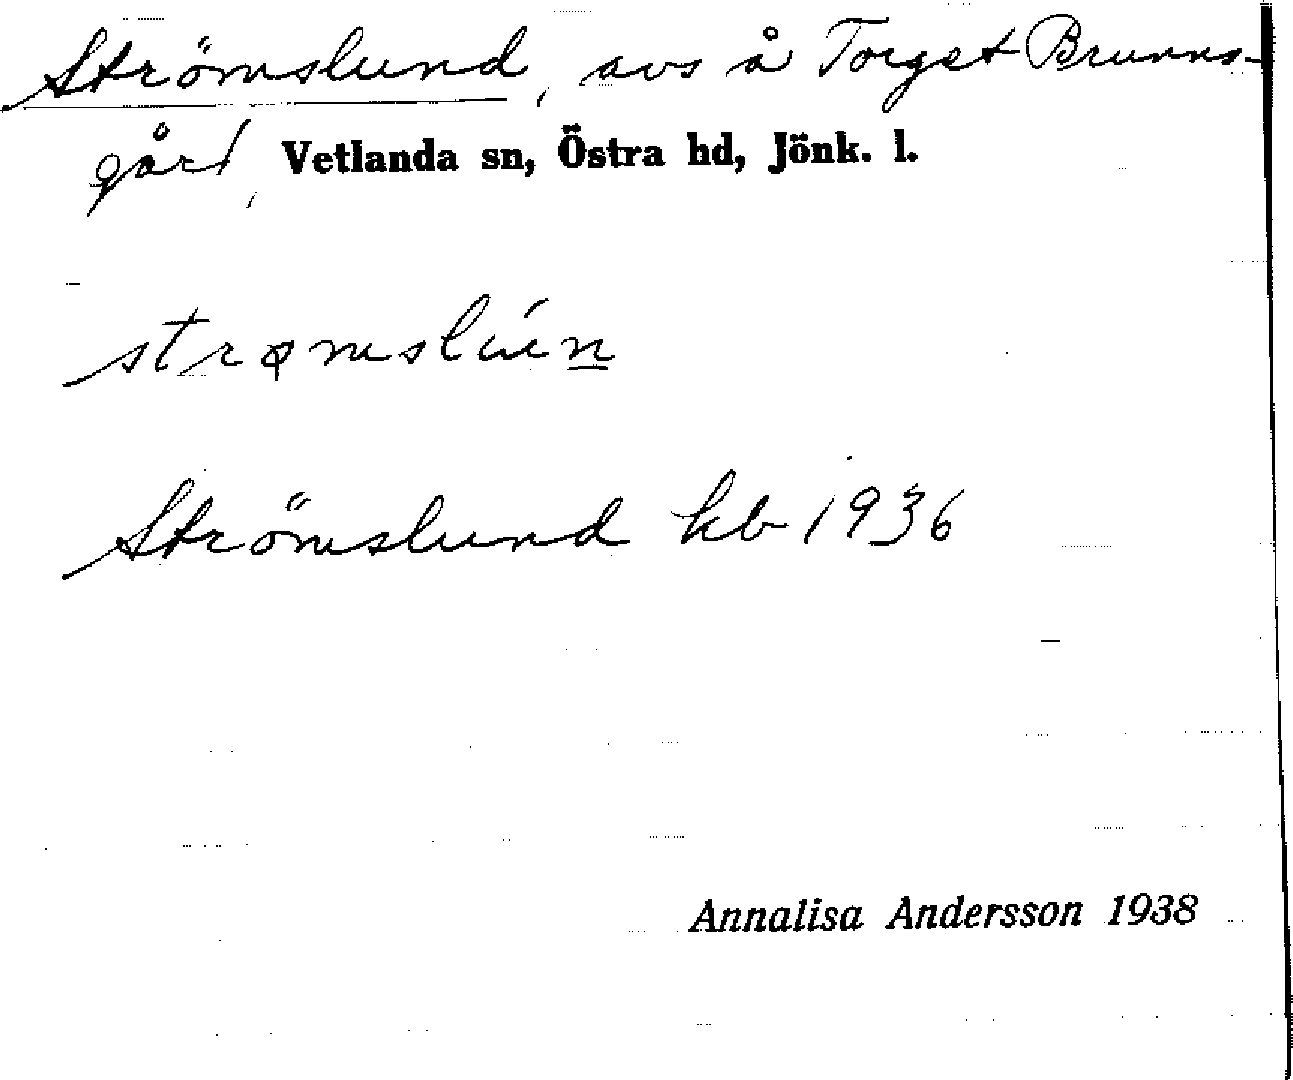 Strömslund, avs å Torget Brunns-
gård, Vetlanda sn, Östra hd, Jönk. l.
strømslún
Strömslund kb 1936
Annalisa Andersson 1938